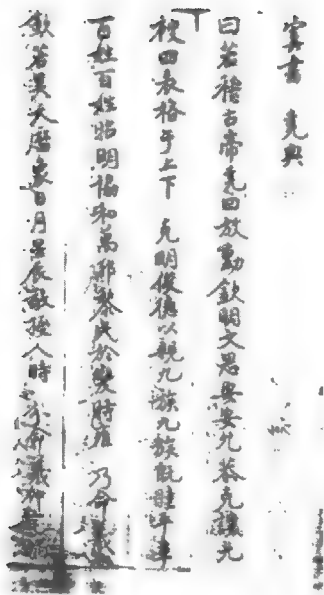 虞書 堯典
曰若稽古帝堯曰放勳欽明文思安安允恭克讓光
被四表格于上下 克明俊德以親九族九族既睦平章
百姓百姓昭明協和萬邦黎民於變時雍 乃命羲
欽若昊天曆象日月星辰敬授人時 分命羲仲宅